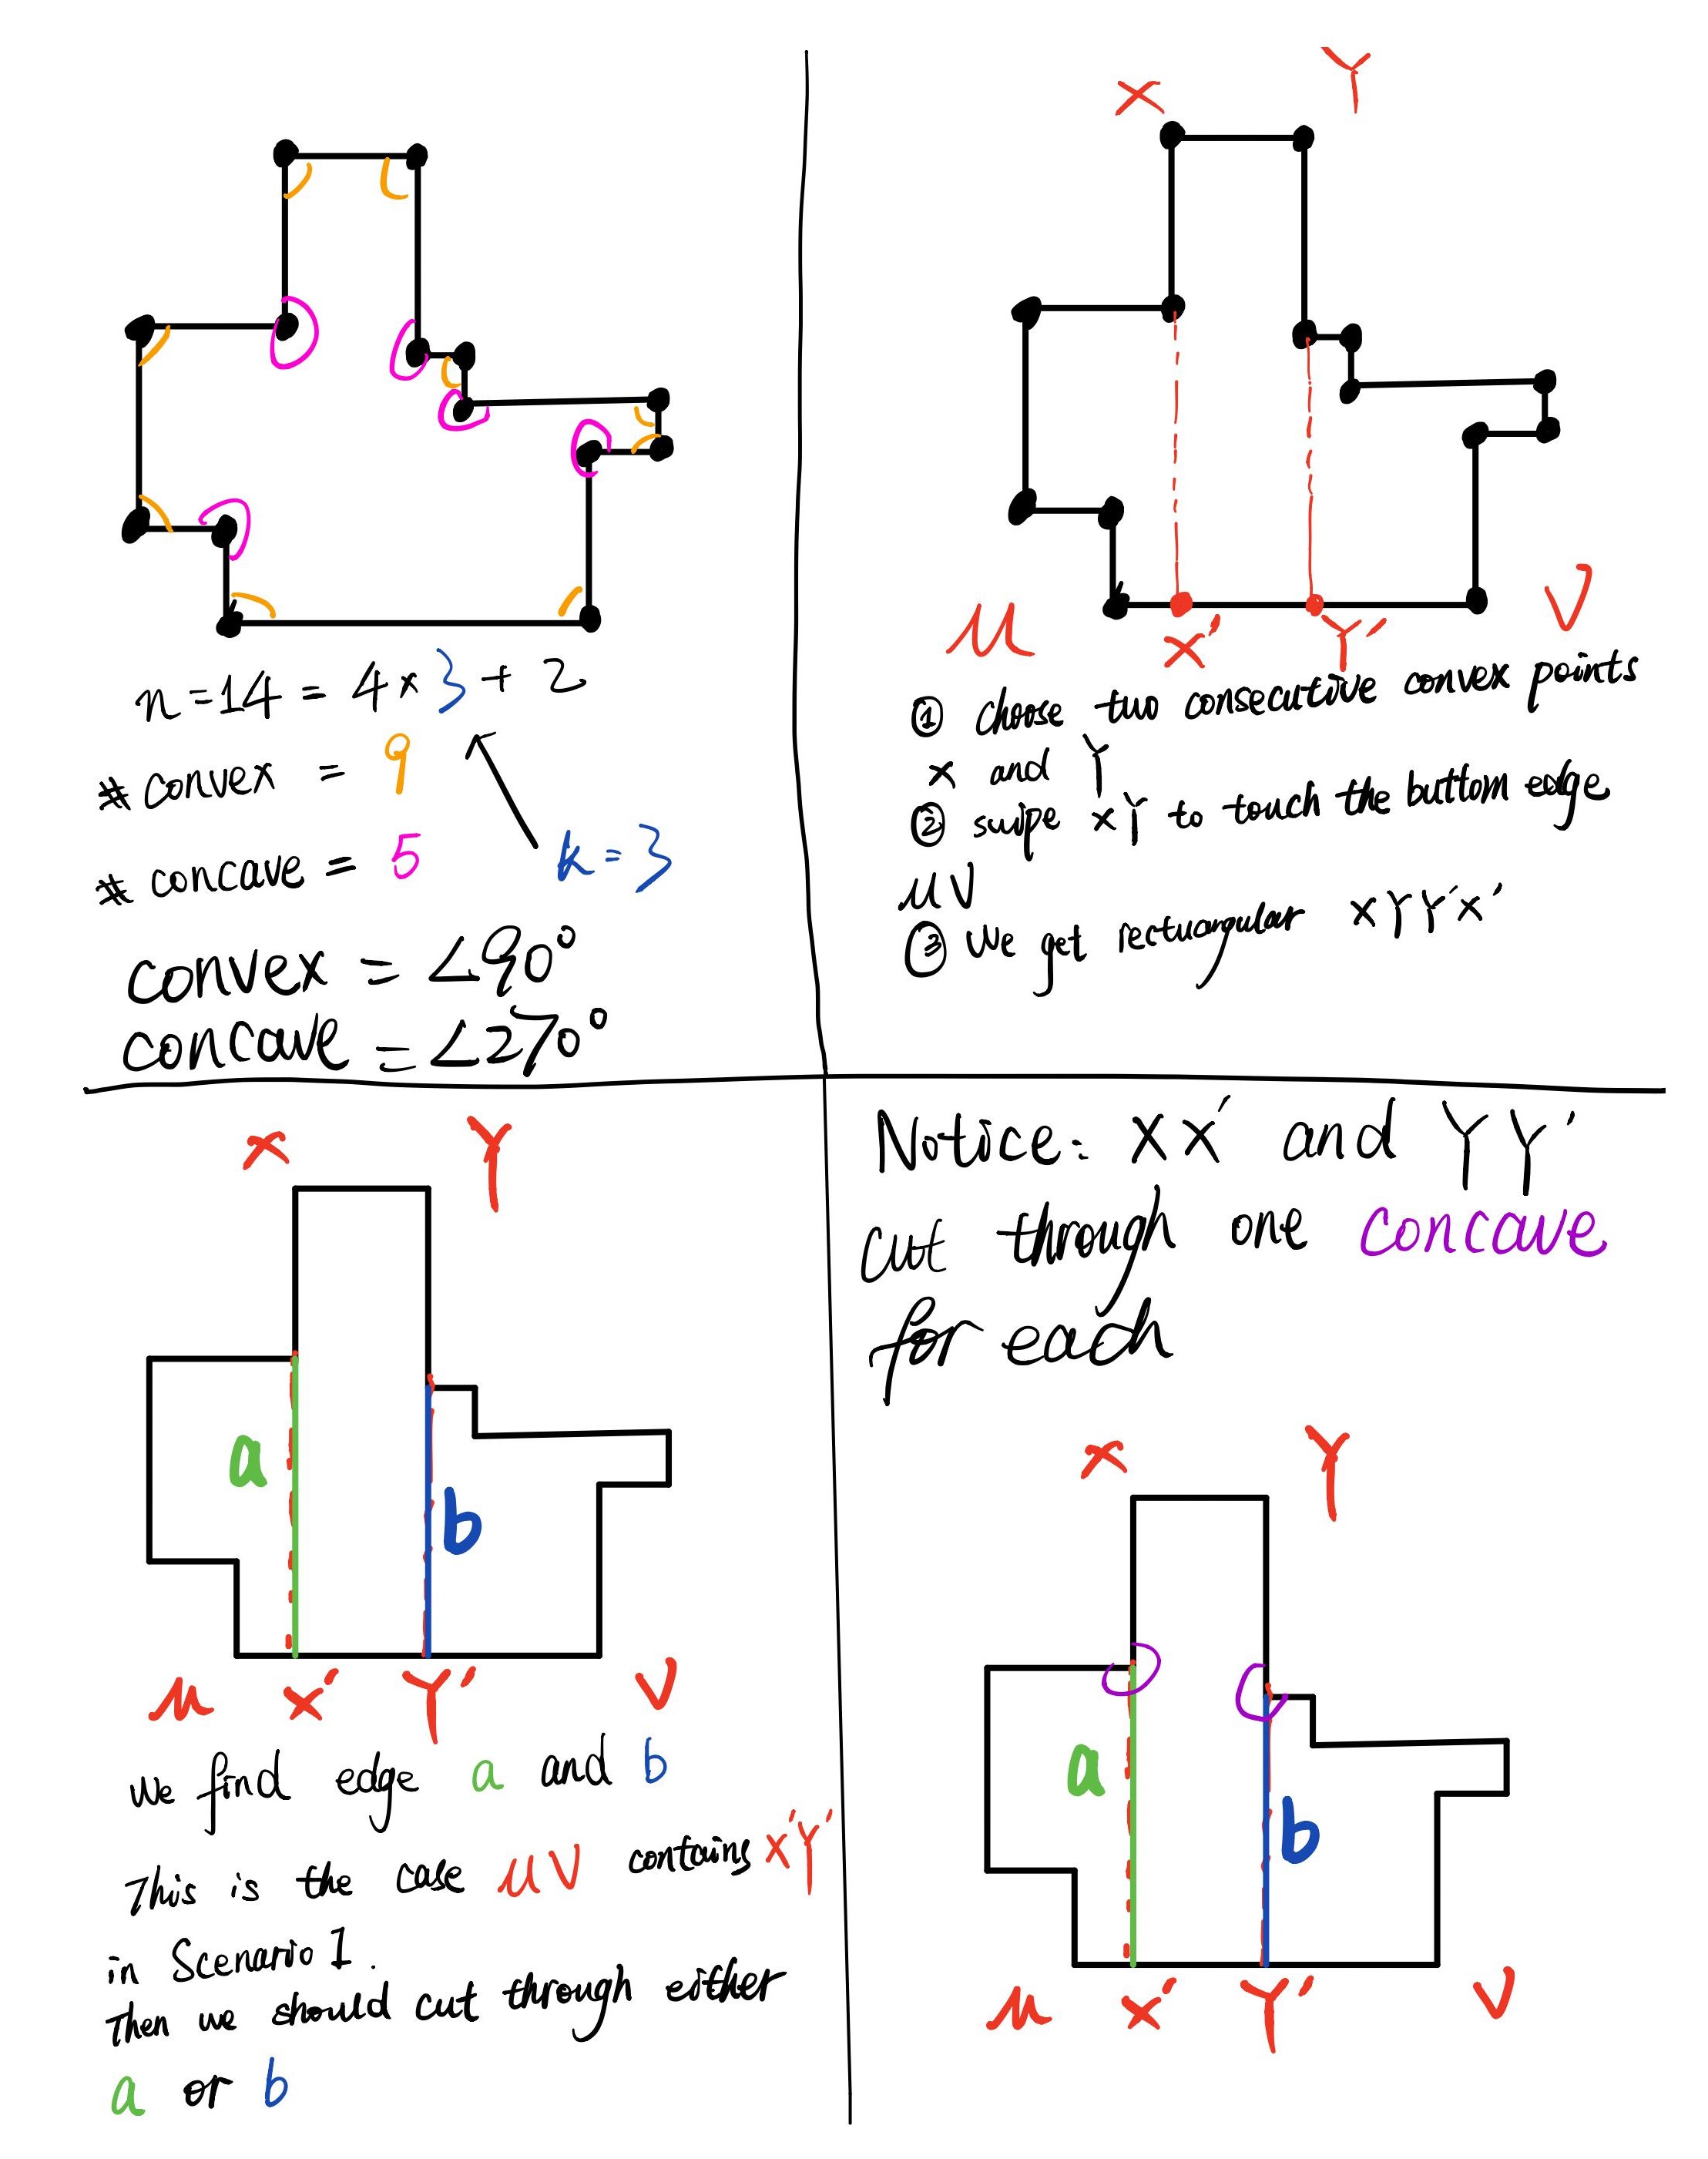 n=14 = 4×3 + 2
# convex = 9
# concave = 5
k=3
convex = ∠90°
concave = ∠270°
X Y
μ X' Y' V
① choose two consecutive convex points
X and Y
② swipe XY to touch the buttom edge
μV
③ We get rectuangular XYY'X'
X Y
a
b
μ X' Y' V
We find edge a and b
This is the case μV contains X'Y'
in Scenario 1.
Then we should cut through either
a or b
Notice: XX' and YY'
cut through one concave
for each
X Y
a
b
μ X' Y' V